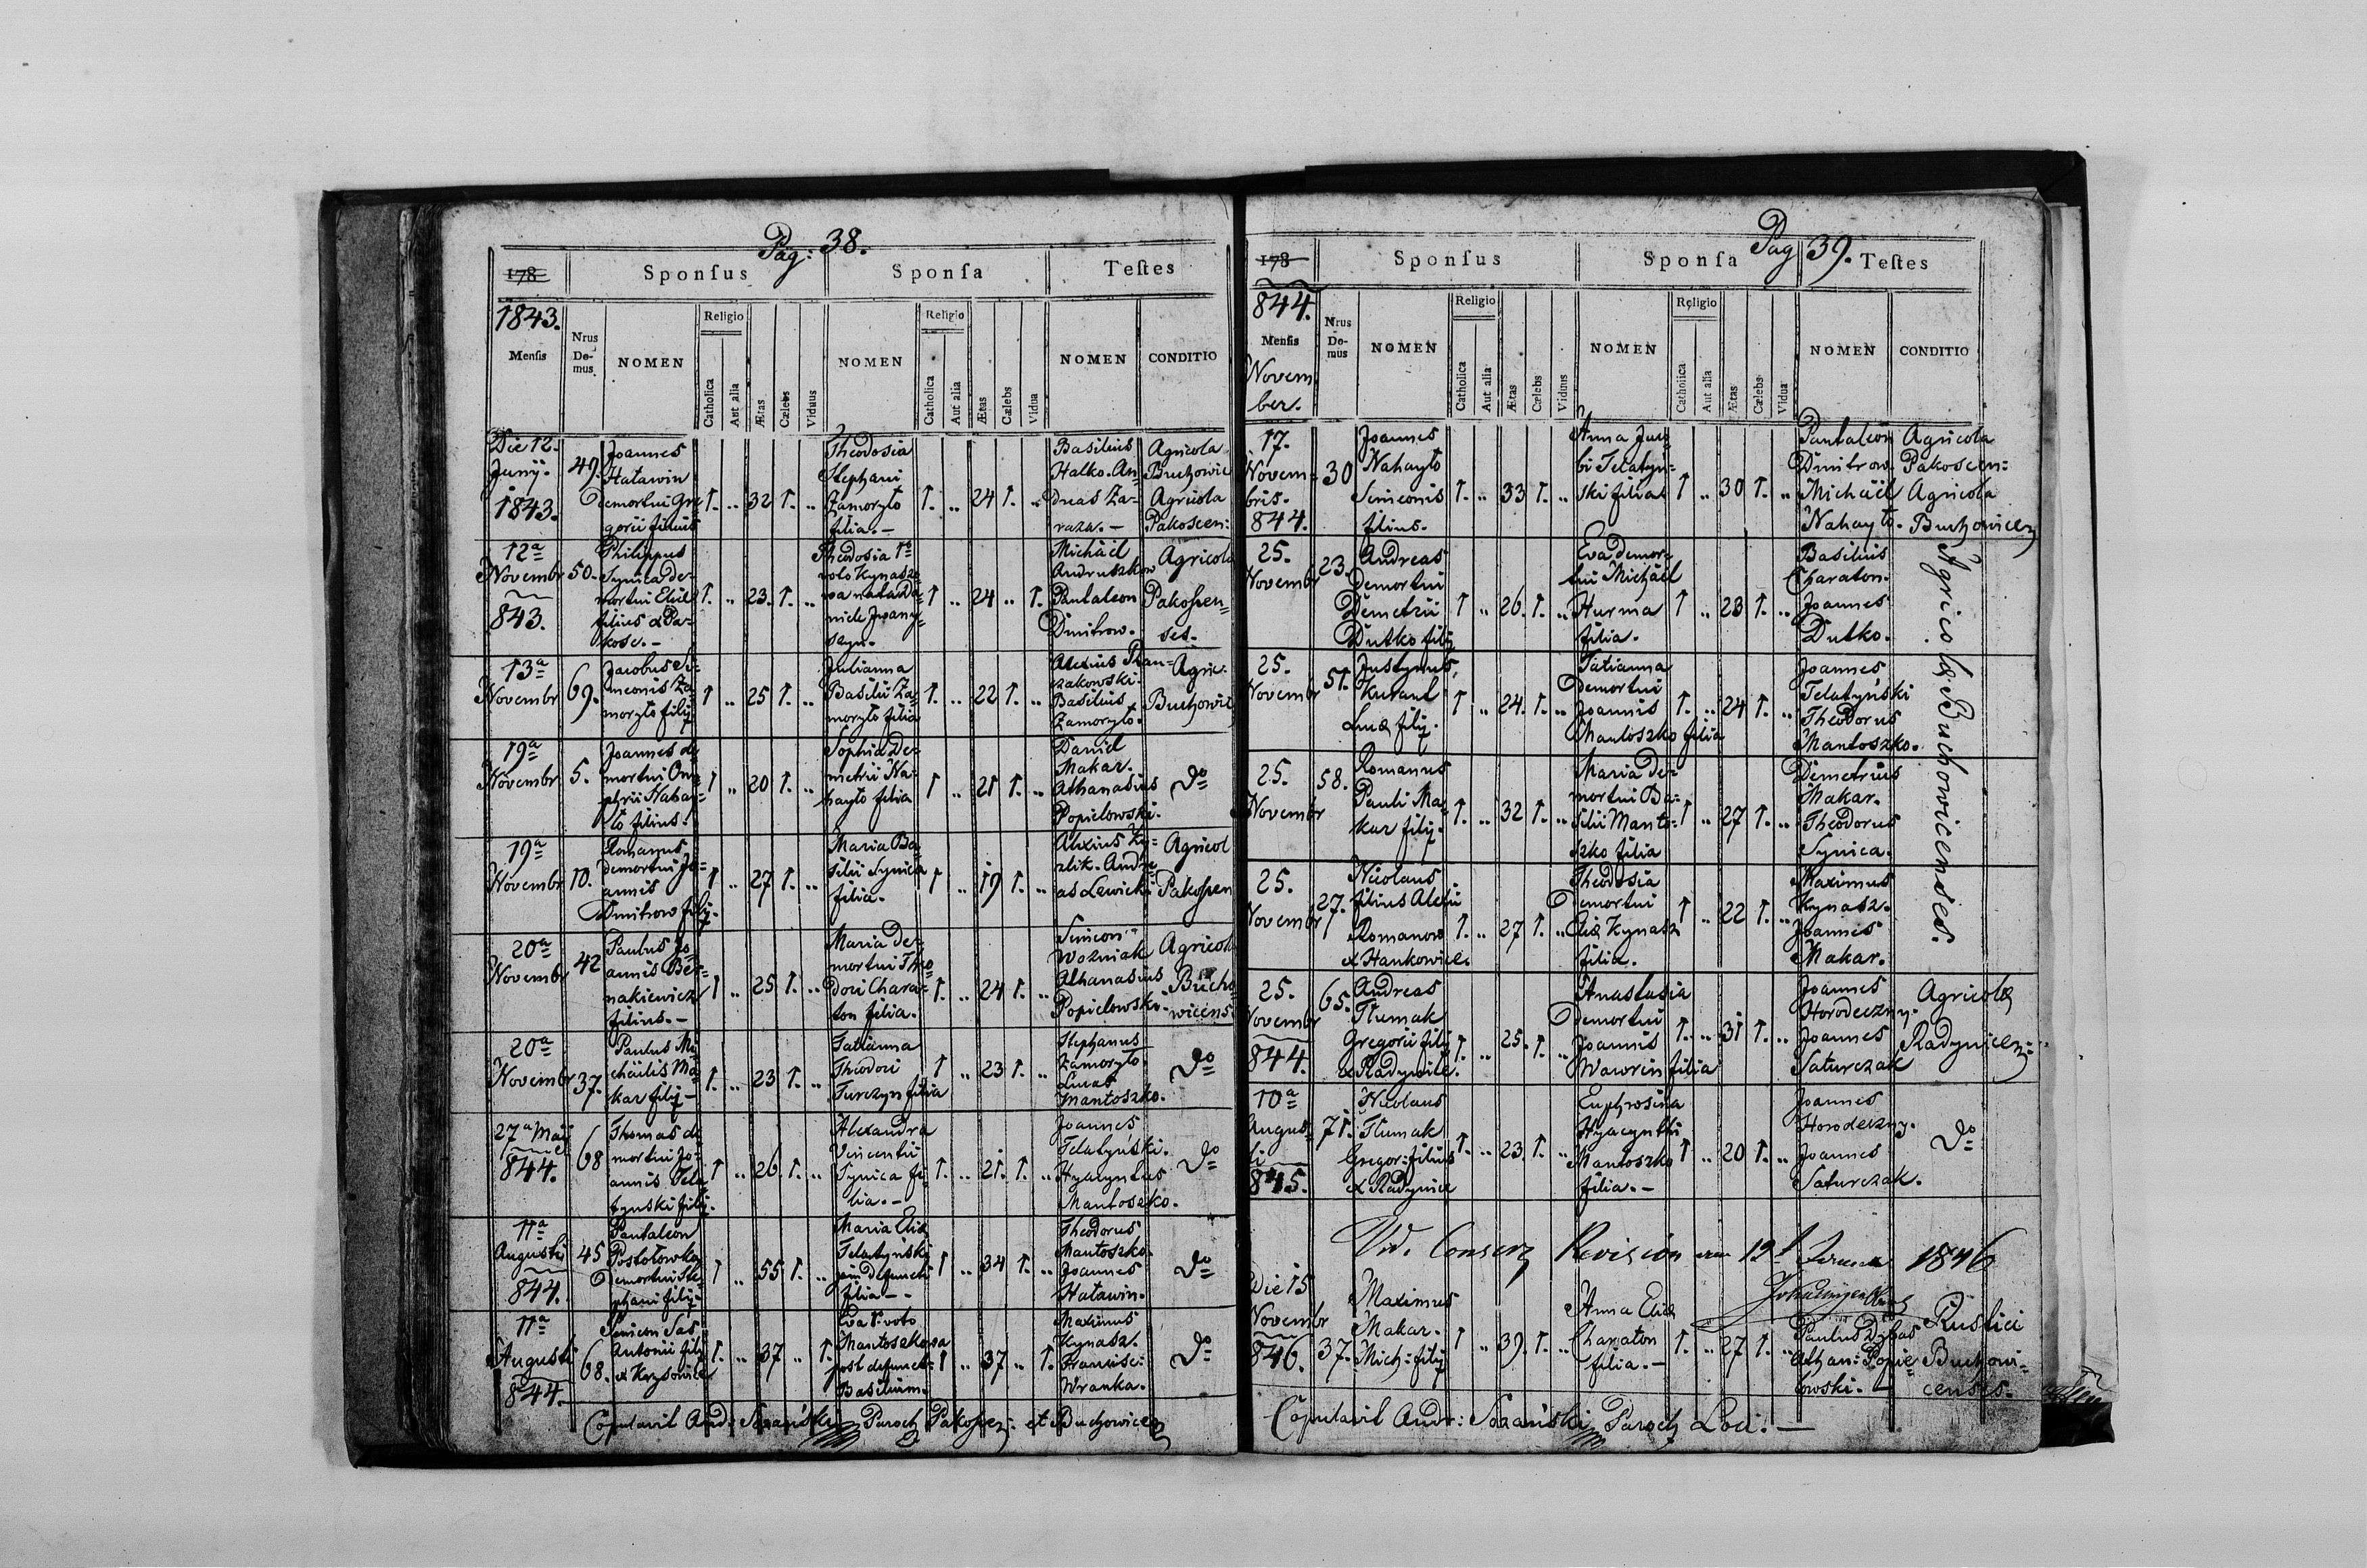 Pag: 38.
178
Sponſus
Sponſa
Teſtes
1843.
Menſis
Nrus De- mus.
NOMEN
Religio
Catholica
Aut alia
Ætas
Cælebs
Viduus
NOMEN
Religio
Catholica
Aut alia
Ætas
Cælebs
Vidua
NOMEN
CONDITIO
Die 12. Junij. 1843.
49.
Joannes
Hatawin
Demortui Gre
gorii filius
1. .. 32 1. ..
Theodosia
Stephani
Zamoryto
filia.-
1. .. 24 1. ..
Basilius
Halko. An=
dreas Za-
raza.-
Agricola
Buchowic
Agricola
Pakoscen:
12a Novembr 843.
50.
Philippus
Synica de-
mortui Eliæ
filius ex Pa-
kosc.-
1. .. 23. 1. ..
Theodosia 1o
voto Kynasze
wa nata Da-
niele Jwany-
1 .. 24 .. 1.
Michäel
Andruszkow
Pantaleon
Dmitrow.
Agricola
Pakoſsen=
ses.
13a Novembr
69.
Jacobus Si-
meonis Za-
moryto filij
1 .. 25 1. ..
Julianna
Basilii Za-
moryto filia
1. .. 22 1. ..
Alexius
Basilius
Zamoryto.
Agric:
Buchowic
19a Novembr
5.
Joannes de
mortui Onu-
phrii Nahay=
to filius.
1 .. 20 1. ..
Sophia De-
metrii Na-
hayto filia
1 .. 21 1. ..
Daniel
Makar.
Athanasius
Popielowski.
do
19a Novembr
10.
Romanus
demortui Jo-
annis
Dmitrow filij.
1 .. 27 1. ..
Maria Ba-
silii Synica
filia.
1 .. 19 1. ..
Alexius Ky-
zlik. Andre
as Lewicki
Agricol
Pakoſsen
20a Novembr
42
Paulus Jo-
annis Ber-
nakiewicz
filius.-
1 .. 25 1. ..
Maria de-
mortui Theo
dori Chara-
ton filia.
1. .. 24 1. ..
Simeon
Wozniak
Athanasius
Popielowski.
Agricol
Bucho
wicens.
20a Novembr
37.
Paulus Mi-
chäelis Ma-
kar filij-
1. .. 23 1. ..
Tatianna
Theodori
Turczyn filia
1 .. 23 1. ..
Stephanus
Zamoryto.
Lucas
Mantoszko.
do
27a Maij 844.
68
Thomas de
mortui Jo-
annis Tela
tynski filij.
1 .. 26. 1. ..
Alexandra
Vincentii
Synica fi-
lia.-
1. .. 21. 1. ..
Joannes
Telatyński.
Hyacyntus
Mantoszko.
do
11a Augusti 844.
45
Pantaleon
Postołowka
Demortui Ste-
phani filij-
1 .. 55 1. ..
Maria Eliæ
Telatyński
jam defuncti
filia-
1 .. 34 1. ..
Theodorus
Mantoszko.
Joannes
Hatawin.
do
11a Augusti 844.
68.
Simeon Sas
Antonii filij
ex Krysowice
1. .. 37 .. 1.
Eva 1o voto
Mantoszkowa
post defunct:
Basilium.
1 .. 37 .. 1.
Maximus
Kynasz.
Francisc:
Wranka.
do
Copulavit And: Sozański Paroch Pakoſsez: et Buchowicez
Pag 39.
178
Sponſus
Sponſa
Teſtes
844.
Menſis
Novem
ber.
Nrus Do- mus
NOMEN
Religio
Catholica
Aut alia
Ætas
Cælebs
Viduus
NOMEN
Religio
Catholica
Aut alia
Ætas
Cælebs
Vidua
NOMEN
CONDITIO
17. Novem- bris. 844.
30
Joannes
Nahayto
Simeonis
filius.
1. .. 33 1. ..
Anna Jaco-
bi Telatyń-
ski filia
1 .. 30 1. ..
Pantaleon
Dmitrow.
Michäel
Nahayto.
Agricola
Pakoscen=
Agricola
Buchowicen
25. Novembr
23.
Andreas
Demortui
Demetrii
Dutko filij
1 .. 26. 1. ..
Eva demor-
tui Michäel
Hurma
filia.
1 .. 23 1. ..
Basilius
Charaton.
Joannes
Dutko.
Agricolæ Buchowicenses.
25. Novembr
51.
Justynus
Kurant
Lucæ filij.
1 .. 24. 1. ..
Tatianna
Demortui
Joannis
Mantoszko filia
1. .. 24 1. ..
Joannes
Telatyński
Theodorus
Mantoszko.
25. Novembr
58.
Romanus
Pauli Ma-
kar filij.
1. .. 32 1. ..
Maria de-
mortui Ba-
silii Manto-
szko filia
1 .. 27 1. ..
Demetrius
Makar.
Theodorus
Synica.
25. Novembr
27.
Nicolaus
filius Alexii
Romanow
ex Hankowice.
1. .. 27 1. ..
Theodosia
Demortui
Eliæ Kynasz
filia.
1 .. 22 1. ..
Maximus
Kynasz.
Joannes
Makar.
25. Novembr 844.
65.
Andreas
Tłumak
Gregorii filij
ex Radynice.
1. .. 25. 1. ..
Anastasia
Demortui
Joannis
Wawrin filia
1. .. 31 1. ..
Joannes
Horodeczny.
Joannes
Saturczak
Agricolæ
Radynicez:
10a Augus- ti 845.
71.
Nicolaus
Tłumak
Gregor: filius
ex Radynice
1. .. 23. 1. ..
Euphrosina
Hyacynthi
Mantoszko
filia.-
1 .. 20 1. ..
Joannes
Horodeczny.
Joannes
Saturczak.
do
Revision 1846
Die 15 Novembr 846.
37.
Maximus
Makar.
Mich: filij
1 .. 39. 1. ..
Anna Eliæ
Charaton
filia.-
1. .. 27 1. ..
Paulus
Athan: Popie
lowski.-
Rustici
Buchowi-
censes.
Copulavit Andr: Sozański Paroch Loci.-